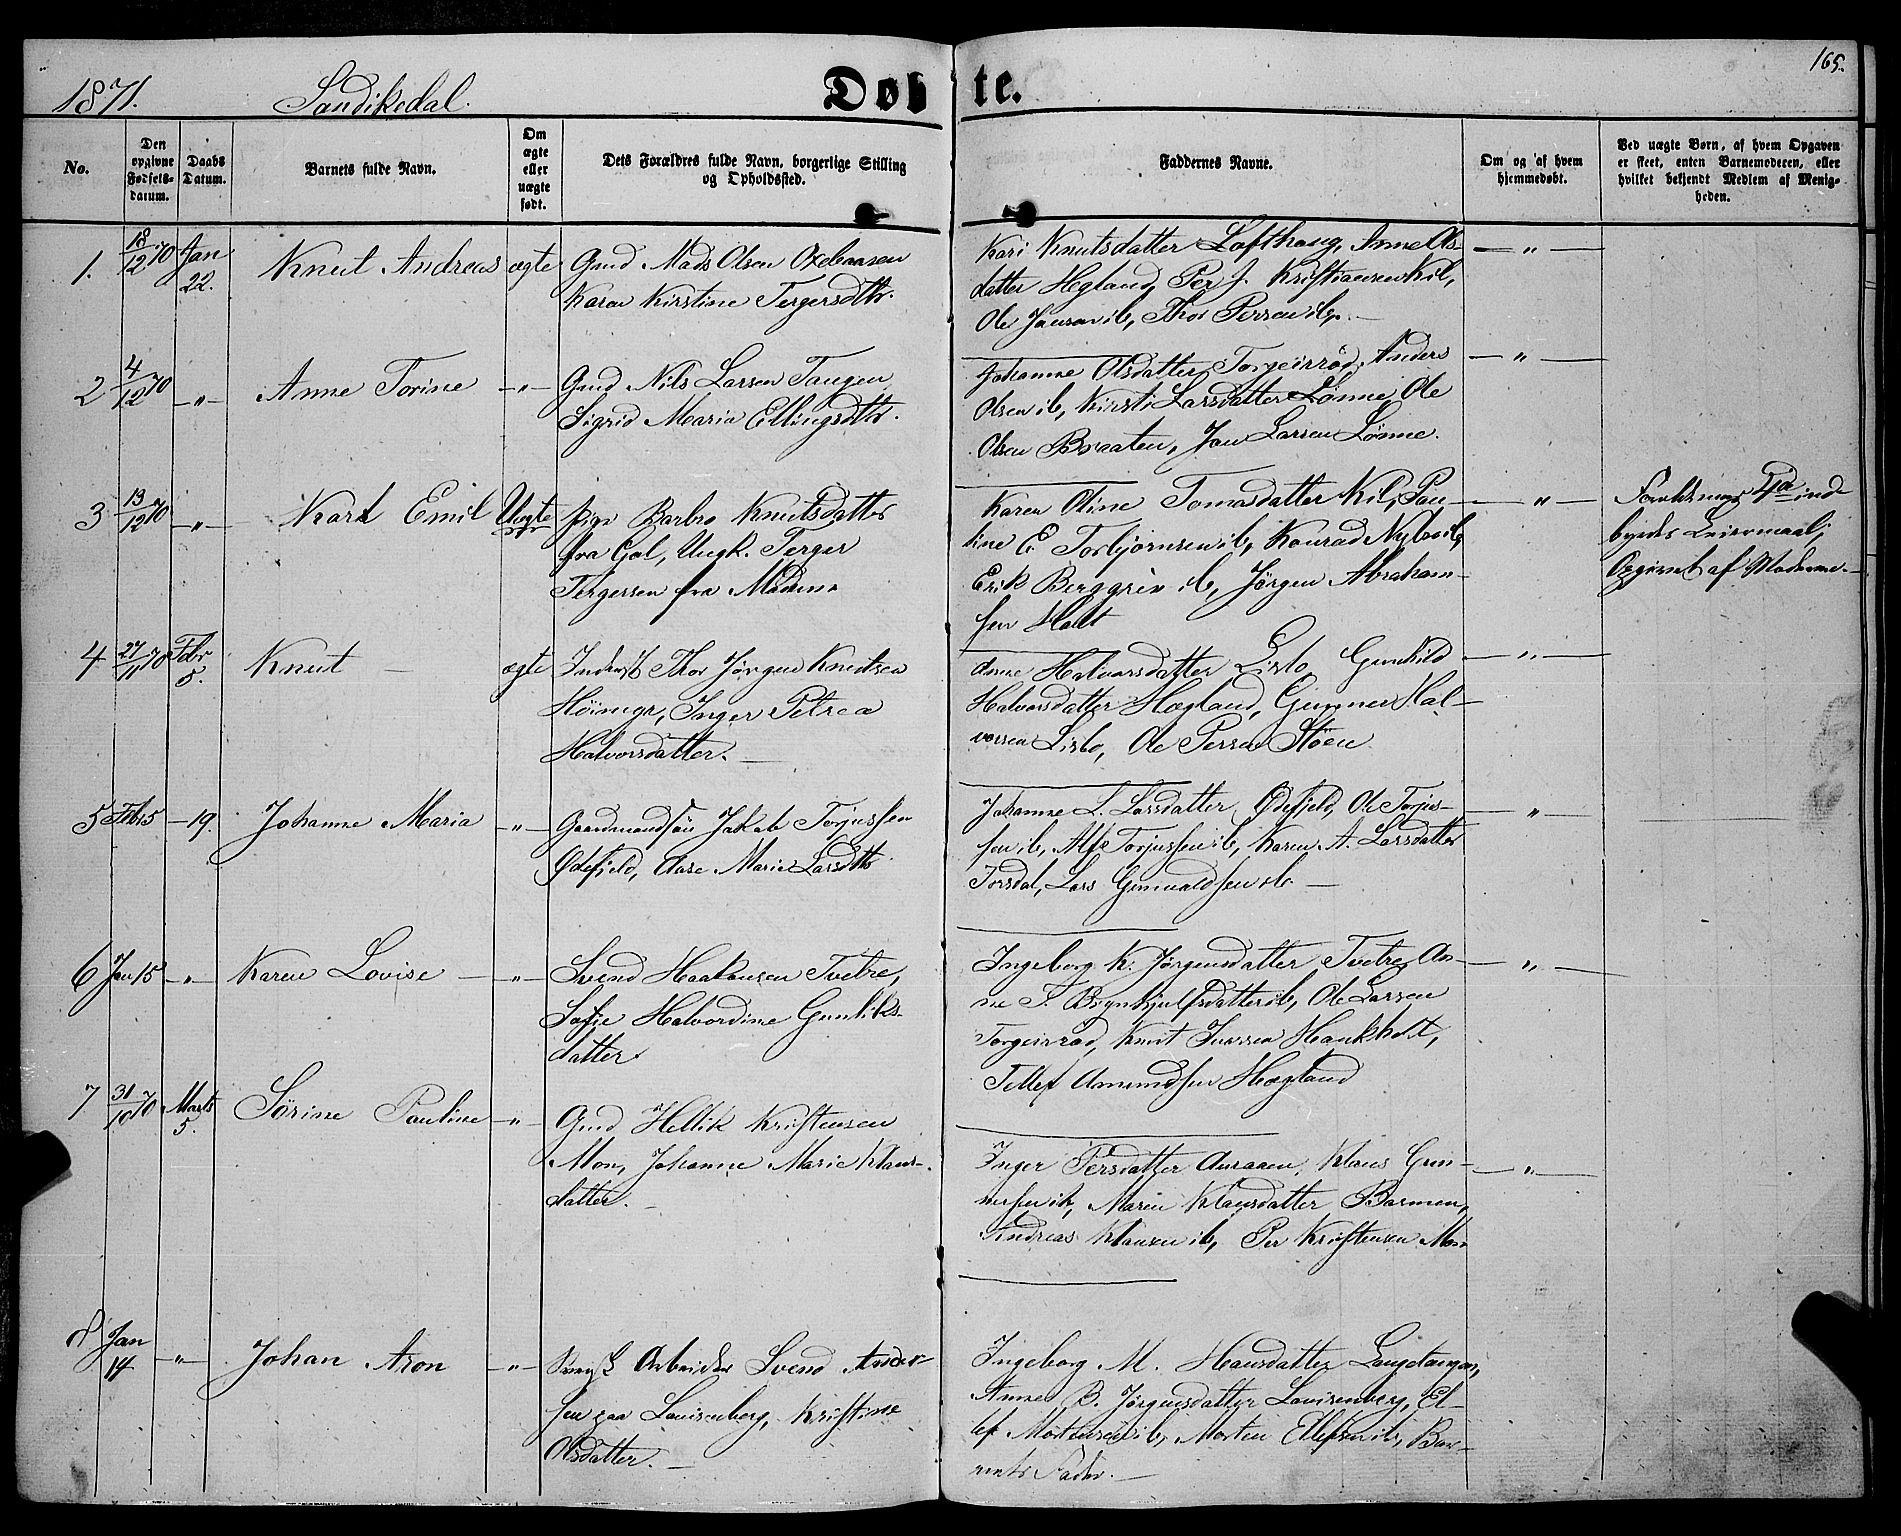 165.
1871. Sandikedal. Døbte.
No.
Den opgivne Fødsels-datum.
Daabs Datum.
Barnets fulde Navn.
Om ægte eller uægte født.
Dets Forældres fulde Navn, borgerlige Stilling og Opholdssted.
Faddernes Navne.
Om og af hvem hjemmedøbt.
Ved uægte Børn, af hvem Opgaven er skeet, enten Barnemoderen, eller hvilket bekjendt Medlem af Menigheden.
1. 18/12 70 Jan 22. Knut Andreas ægte Gmd Mads Olsen
Karen Kirstine Tergersdttr.
Kari Knutsdatter Lofthaug, Anne Ols-
datter Hegland, Per J. Kristiansen Kil,
Ole Jansen ib, Thor Persen ib. —
— " —
2 4/12 70 — " — Anne Torine — " — Gmd Nils Larsen Tangen
Sigrid Maria Ellingsdttr.
Johanne Olsdatter Torgeirrød, Anders
Olsen ib, Kirsti Larsdatter Lønne, Ole
Olsen Braaten, Jan Larsen Lønne.
— " —
3 13/12 70 — " — Karl Emil Uægte Pige Barbro Knutsdatter
fra Gol, Ungk. Terger
Tergersen fra
Karen Oline Tomasdatter Kil, Pau-
line E. Torbjørnsen ib, Konrad ib,
Erik Berggrén ib, Jørgen Abraham-
sen Holt
— " —
Opgivet af Moderen. —
4 27/11 70 Febr 5. Knut — ægte Inderst Thor Jørgen Knutsen
Inger Petrea
Halvorsdatter. —
Anne Halvorsdatter Lislo, Gunhild
Halvorsdatter Hægland, Gunner Hal-
vorsen Lislo, Ole Persen Støen
— " —
5 Febr 5 — 19. Johanne Maria — " — Gaardmandsøn Jakob Torjussen
Ødefjeld, Aase Marie Larsdttr
Johanne L. Larsdatter Ødefjeld, Ole Torjus-
sen ib, Alf Torjussen ib, Karen A. Larsdatter
Torsdal, Lars Gunvaldsen ib. —
— " —
6 Jan 15 — " — Karen Lovise — " — Svend Haakonsen Tvetre,
Sofie Halvordine Gunliks-
datter
Ingeborg K. Jørgensdatter Tvetre, An-
ne T. Brynhjulfsdatter ib, Ole Larsen
Torgeirrød, Knut Ivarsen Haukholt,
Tellef Amundsen Hægland
— " —
7 31/10 70 Marts 5. Sørine Pauline — " — Gmd Hellik Kristensen
Mon, Johanne Marie Klaus-
datter. —
Inger Persdatter Aaraaen, Klaus Gun-
nersen ib, Maren Klausdatter Barmen,
Andreas Klausen ib, Per Kristensen Mon
— " —
8 Jan 14 — " — Johan Aron — " — Svensk Arbeider Svend Ander-
sen paa Louisenberg, Kristine
Olsdatter. —
Ingeborg M. Hansdatter Langetangen,
Anne B. Jørgensdatter Louisenberg, El-
lef Mortensen ib, Morten Ellefsen ib, Bar-
nets Fader. —